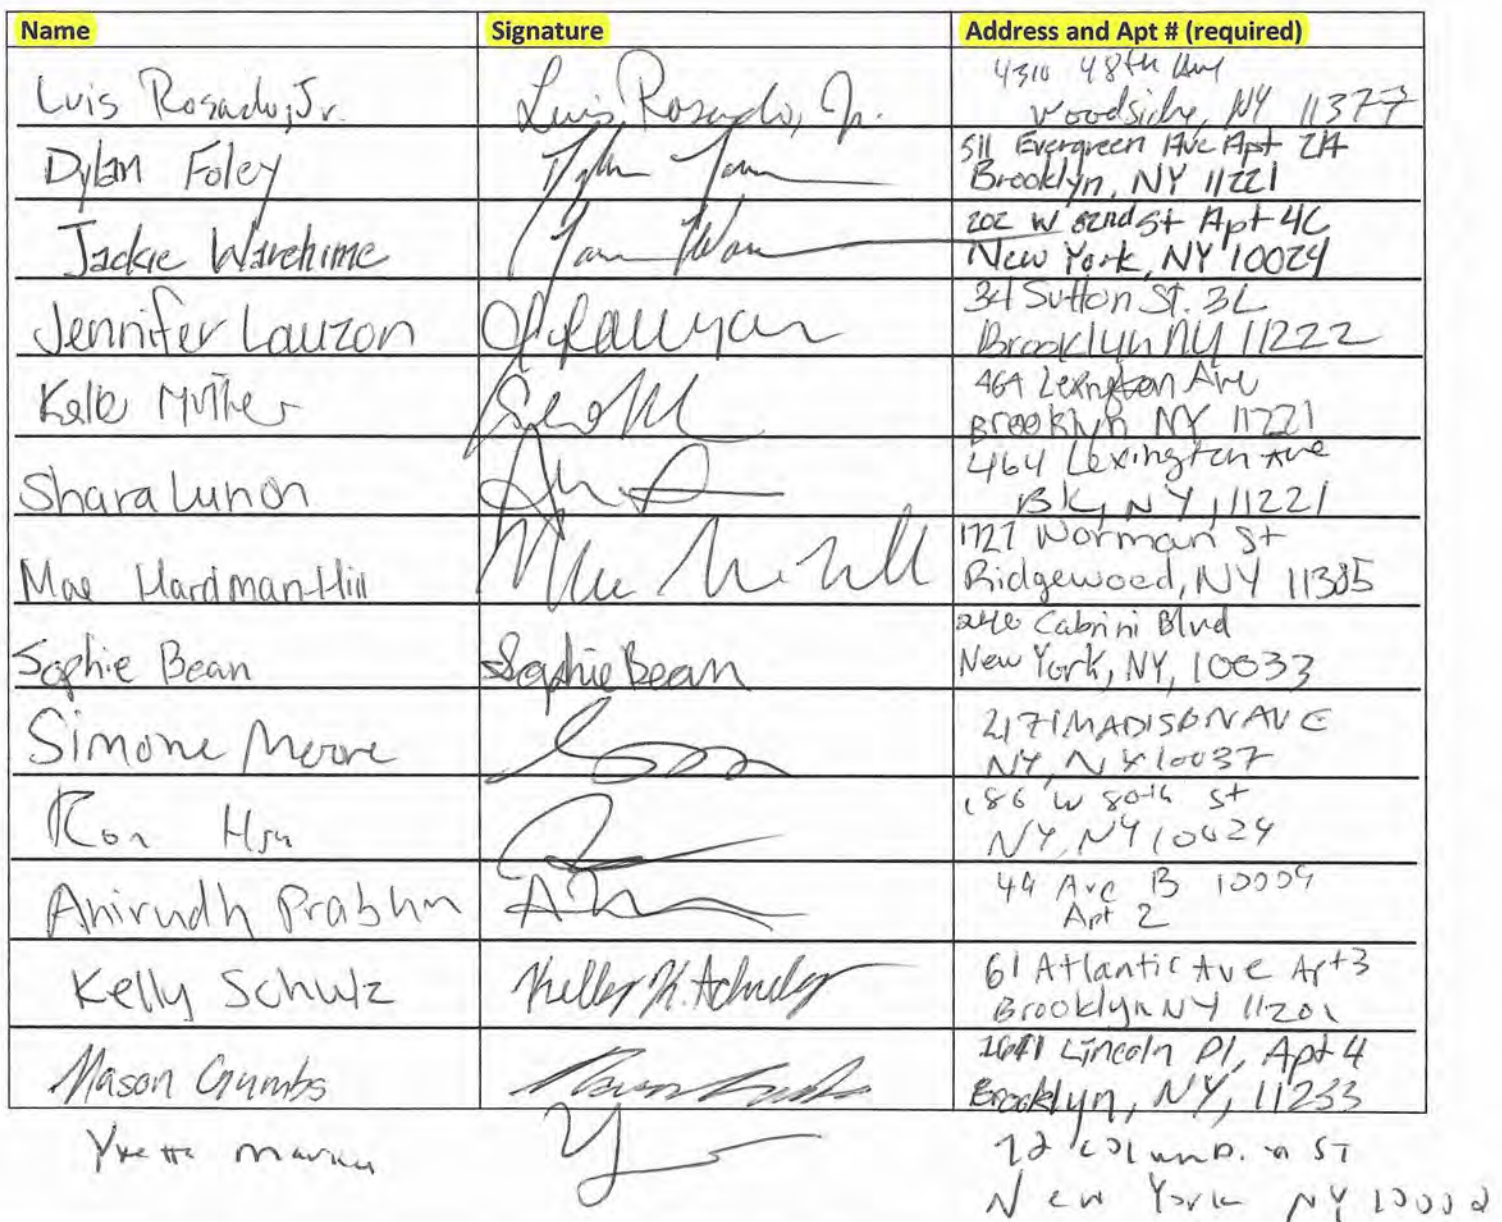 Name Signature Address and Apt # (required)
Luis Rosado, Jr. Luis Rosado, Jr. 4310 48th Ave
Woodside, NY 11377
Dylan Foley 511 Evergreen Ave Apt 2A
Brooklyn, NY 11221
Jackie Warehime 202 W 82nd St Apt 4C
New York, NY 10024
Jennifer Lauzon 34 Sutton St. 3L
Brooklyn NY 11222
464 Lexington Ave
Brooklyn NY 11221
Shara Lunon 464 Lexington Ave
BK, NY, 11221
Mae Hardman-Hill 1727 Norman St
Ridgewood, NY 11385
Sophie Bean Sophie Bean Cabrini Blvd
New York, NY, 10033
Simone Moore 2171 MADISON AVE
NY, NY 10037
Ron Hsu 186 W 80th St
NY, NY 10024
Anirudh Prabhu Ave B 10009
Apt 2
Kelly Schulz 61 Atlantic Ave Apt 3
Brooklyn NY 11201
Mason Gumbs Lincoln Pl, Apt 4
Brooklyn, NY, 11233
Yvette ST
New York NY 10002